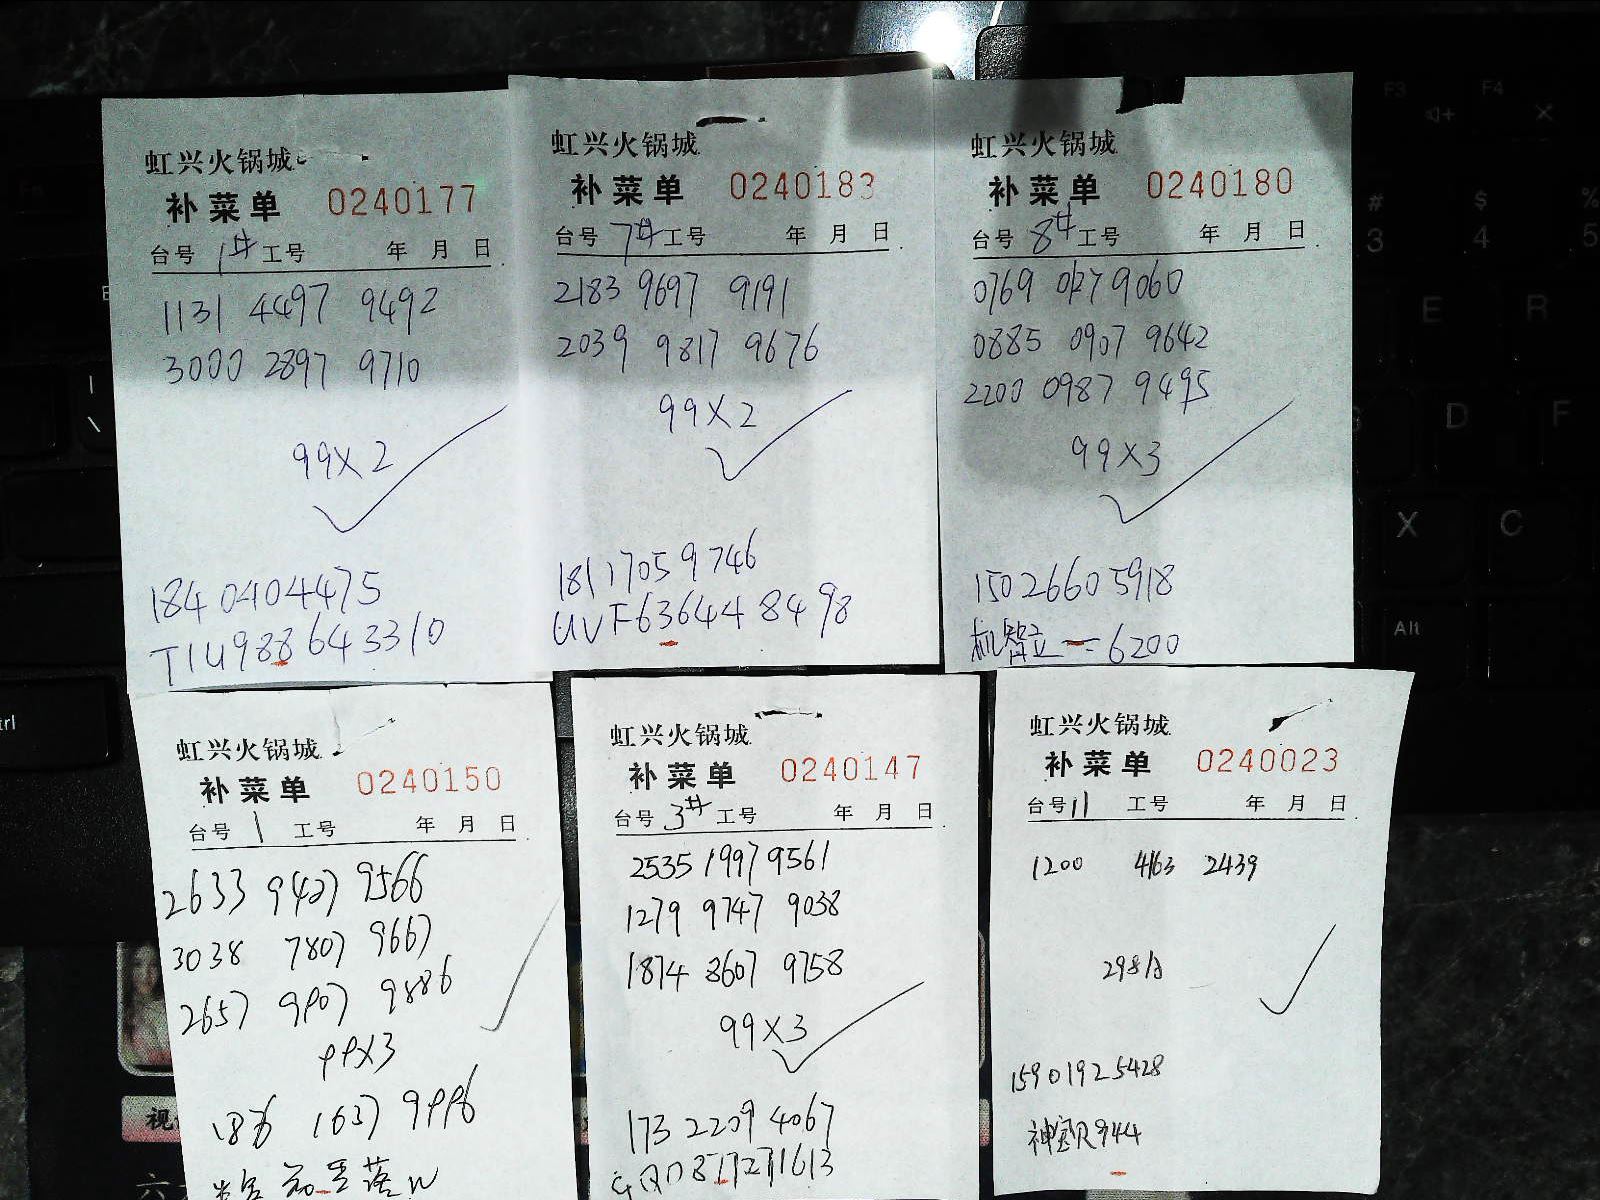 虹兴火锅城
补菜单 0240177
台号 1# 工号 年 月 日
1131 4497 9492
3000 2897 9710
99×2
1840404475
T1U988643310
虹兴火锅城
补菜单 0240183
台号 7# 工号 年 月 日
2183 9697 9191
2039 9817 9676
99×2
18117059746
UVF636448498
虹兴火锅城
补菜单 0240180
台号 8# 工号 年 月 日
0769 9060
0885 0907 9642
2200 0987 9495
99×3
15026605918
6200
虹兴火锅城
补菜单 0240150
台号 1 工号 年 月 日
2633 9427 9566
3038 7807 9667
2657 9907 9886
99×3
1637 9996
虹兴火锅城
补菜单 0240147
台号 3# 工号 年 月 日
2535 1997 9561
1279 9747 9038
1874 8607 9758
99×3
173 2209 4067
虹兴火锅城
补菜单 0240023
台号 11 工号 年 月 日
1200 4163 2439
15901925428
944
F3
F4
#
3
$
4
%
5
E
R
D
F
X
C
Alt
视
六